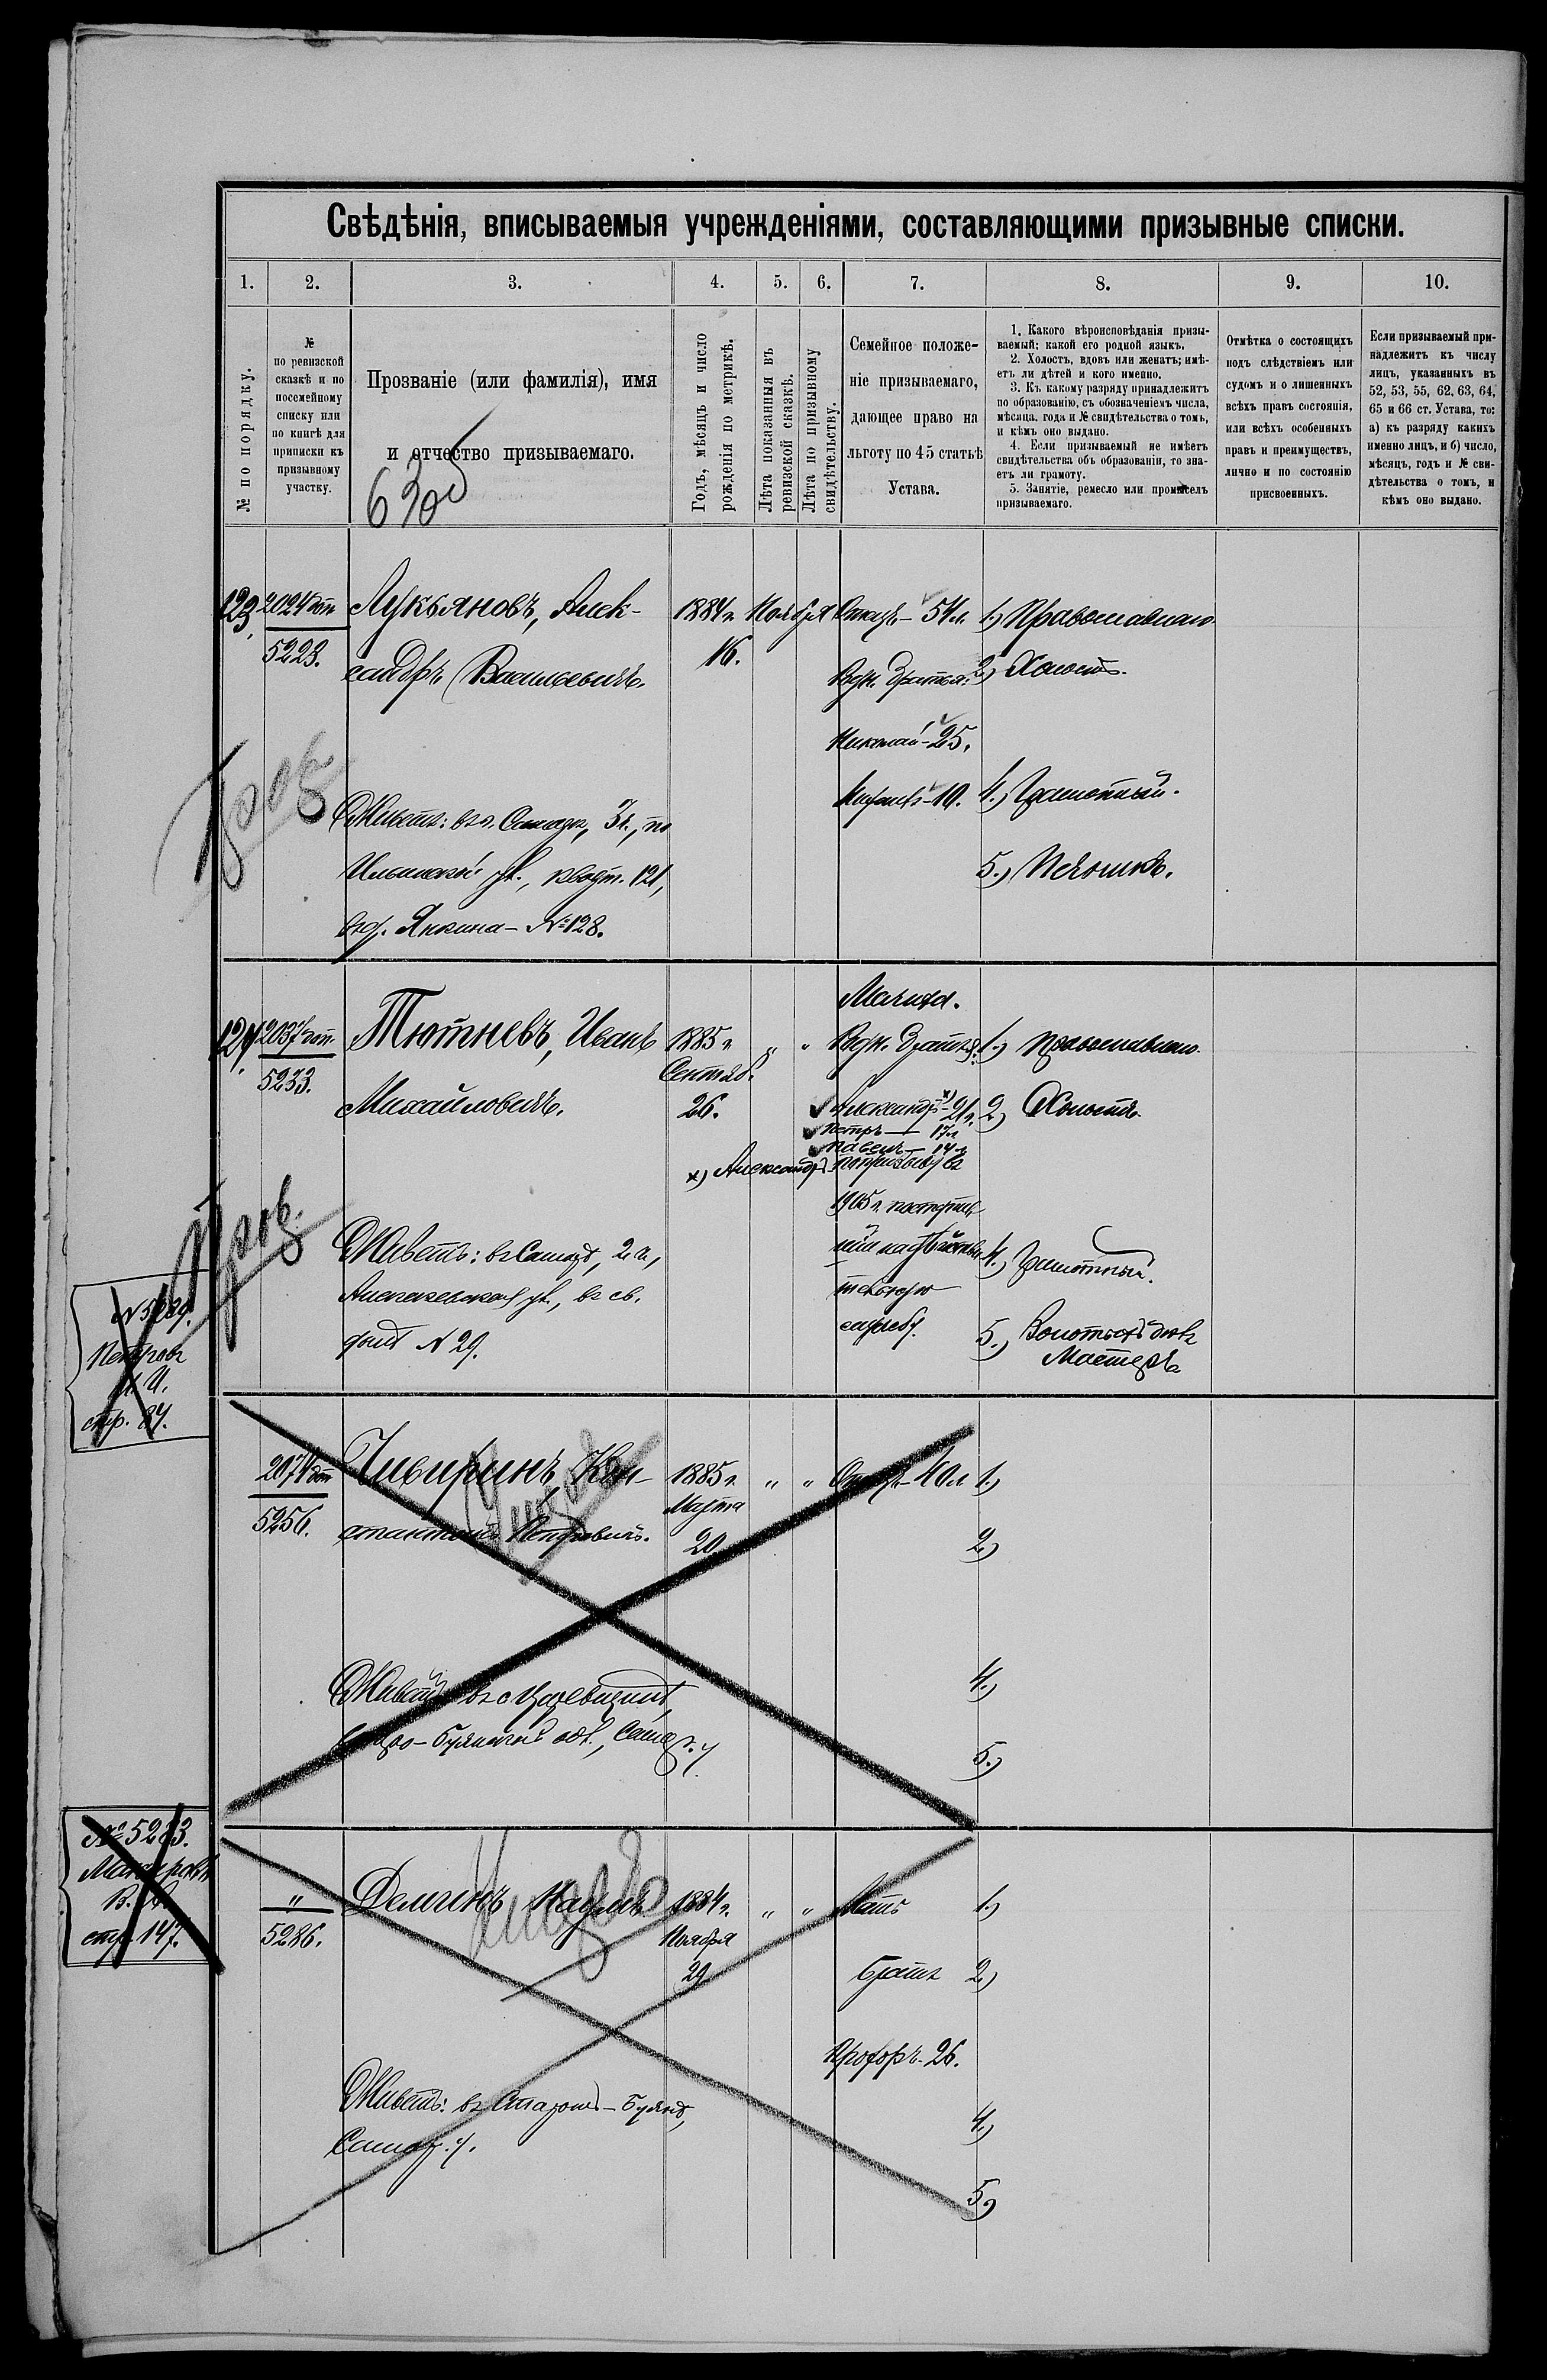 Свѣдѣнія, вписываемыя учрежденіями, составляющими призывные списки.
1. 2. 3. 4. 5. 6. 7. 8. 9. 10.
№ по порядку.
№
по ревизской
сказкѣ и по
посемейному
списку или
по книгѣ для
приписки къ
призывному
участку.
Прозваніе (или фамилія), имя
и отчество призываемаго.
Годъ, мѣсяцъ и число
рожденія по метрикѣ.
Лѣта показанныя въ
ревизской сказкѣ.
Лѣта по призывному
свидѣтельству.
Семейное положе-
ніе призываемаго,
дающее право на
льготу по 45 статьѣ
Устава.
1. Какого вѣроисповѣданія призы-
ваемый; какой его родной языкъ.
2. Холостъ, вдовъ или женатъ; имѣ-
етъ ли дѣтей и кого именно.
3. Къ какому разряду принадлежитъ
по образованію, съ обозначеніемъ числа,
мѣсяца, года и № свидѣтельства о томъ,
и кѣмъ оно выдано.
4. Если призываемый не имѣетъ
свидѣтельства объ образованіи, то зна-
етъ ли грамоту.
5. Занятіе, ремесло или промыселъ
призываемаго.
Отмѣтка о состоящихъ
подъ слѣдствіемъ или
судомъ и о лишенныхъ
всѣхъ правъ состоянія,
или всѣхъ особенныхъ
правъ и преимуществъ,
лично и по состоянію
присвоенныхъ.
Если призываемый при-
надлежитъ къ числу
лицъ, указанныхъ въ
52, 53, 55, 62, 63, 64,
65 и 66 ст. Устава, то:
а) къ разряду какихъ
именно лицъ, и б) число,
мѣсяцъ, годъ и № сви-
дѣтельства о томъ, и
кѣмъ оно выдано.
123.
2024 доп.
5223.
Лукьяновъ, Алек-
сандръ Васильевичъ.
1884 г. Ноября
16.
Отецъ - 54 л.
Родн. братья:
Николай - 25.
1.) Православнаго
2.) Холостъ.
4.) Грамотный.
5.) Печникъ.
Живетъ: въ г. Самарѣ, 3 ч., по
Ильинской ул., кварт. 121,
въ д. Янкина - № 128.
124.
2037 доп.
5233.
Тютневъ, Иванъ
Михайловичъ.
1885 г. " "
Сентяб.
26.
Мачиха.
Родн. братья:
Александръ x) - 21 г.
Петръ - 17 л.
Павелъ - 14 л.
x) Александръ по призыву въ
1905 г. поступилъ
1.) Православнаго
2.) Холостъ
4.) Грамотный.
5.) Золотыхъ дѣлъ
Мастеръ
Живетъ: въ Самарѣ, 2 ч.,
Алексѣевская ул., въ св.
домѣ № 29.
Петровъ
И.
стр. 84.
2074 доп
5256.
Чивиринъ, Кон-
стантинъ Петровичъ.
1885 г. " "
Марта
20.
Отецъ - 40 л.
1.)
2.)
4.)
5.)
Живетъ: въ с. Царевщинѣ,
Самар. у.
№ 5283.
стр. 147.
"
5286.
Демчинъ Наумъ
1884 г. " "
Ноября
29
Мать
братъ
Прохоръ - 26.
1.)
2.)
4.)
5.)
Живетъ: въ Старомъ - Буянѣ,
Самар. у.